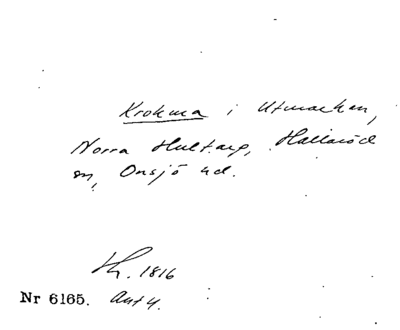 Krokma i Utmarken,
Norra Hultarp, Hallaröd
sn, Onsjö hd.
Lh. 1816
Nr 6165. Akt 4.